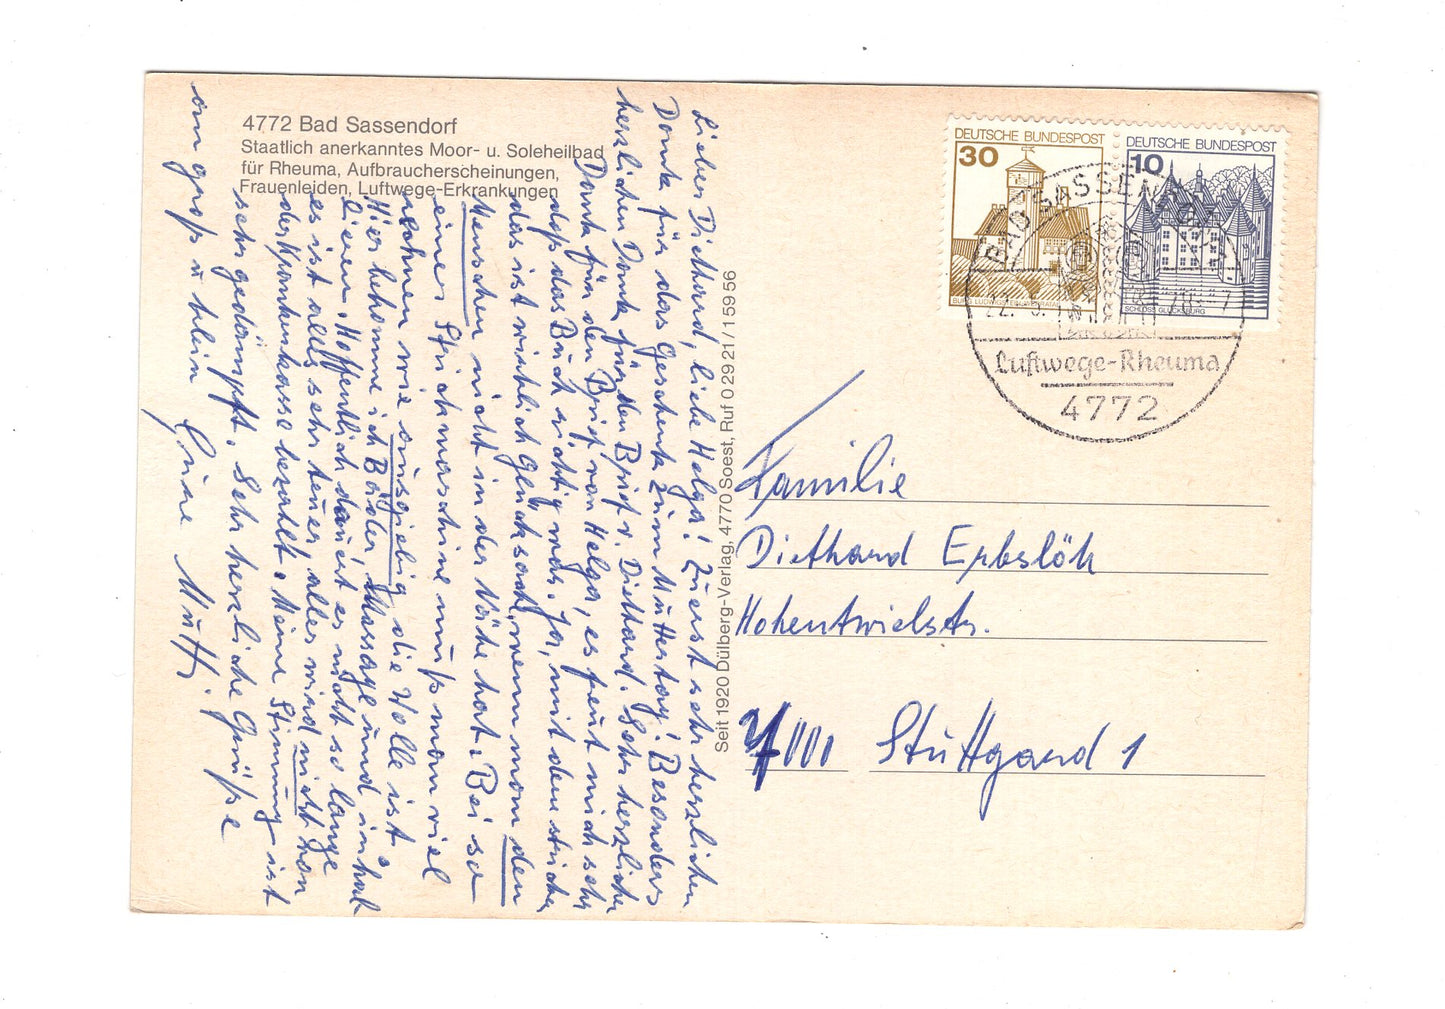 4772 Bad Sassendorf
Staatlich anerkanntes Moor- u. Soleheilbad
für Rheuma, Aufbraucherscheinungen,
Frauenleiden, Luftwege-Erkrankungen
Lieber Diethard, liebe Helga! Zuerst sehr herzlichen
Dank für das Geschenk zum Muttertag! Besonders
herzlichen Dank für den Brief v. Diethard. Sehr herzlichen
Dank für den Brief von Helga, es freut mich sehr
daß das Buch richtig war. Ja, mit dem stricken
das ist wirklich Glücksach, wenn man den
Menschen nicht in der Nähe hat. Bei so
einer Strickmaschine muß man viel
rechnen wie ausgiebig die Wolle ist.
Hier bekomme ich Bäder, Massage und inhal
lieren. Hoffentlich dauert es nicht so lange
es ist alles sehr teuer, alles wird nicht von
der Krankenkasse bezahlt. Meine Stimmung ist
sehr gedämpft. Sehr herzliche Grüße
an groß u klein Eure Mutti.
Seit 1920 Dülberg-Verlag, 4770 Soest, Ruf 0 29 21 / 1 59 56
DEUTSCHE BUNDESPOST
30
BURG LUDWIGSTEIN WERRATAL
DEUTSCHE BUNDESPOST
10
SCHLOSS GLÜCKSBURG
BAD SASSENDORF
22. 5.
Luftwege-Rheuma
4772
Familie
Diethard Erbslöh
Hohentwielstr.
7000 Stuttgard 1